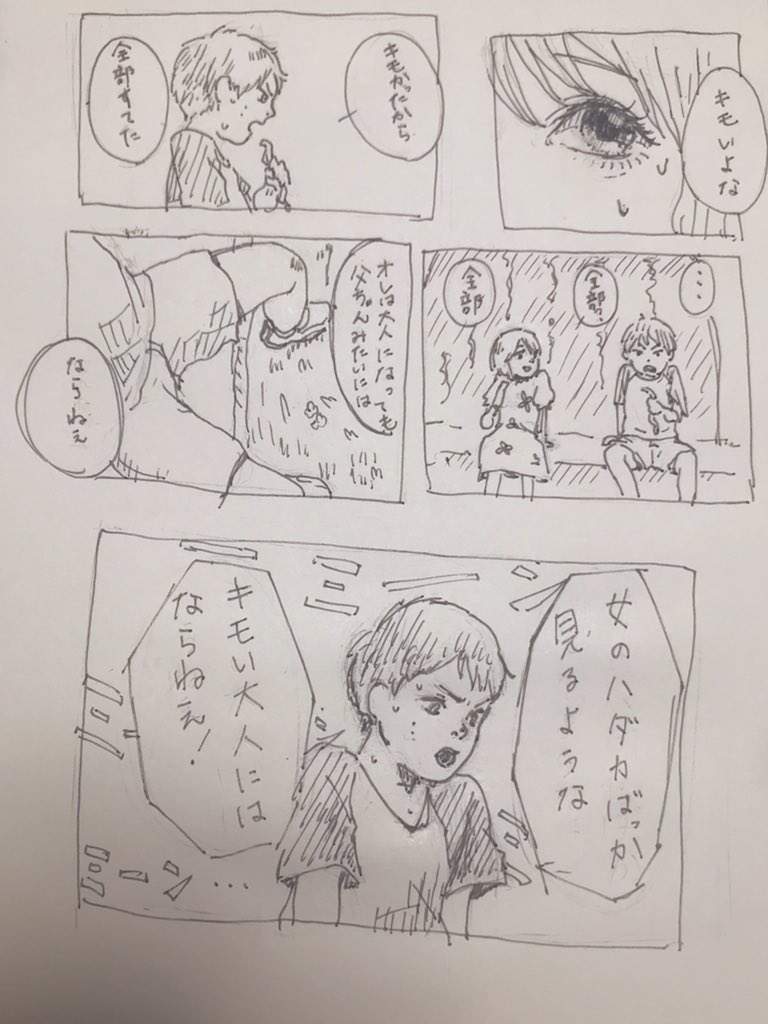 キモいよな
キモかったから
全部すてた
…
全部。
全部
オレは大人になっても
父ちゃんみたいには
ならねぇ
女のハダカばっか
見るような
キモい大人には
ならねぇ!